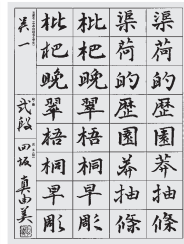 渠荷的歴園莽抽條
渠荷的歴園莽抽條
枇杷晩翠梧桐早彫
枇杷晩翠梧桐早彫
弐段 四坂 真由美